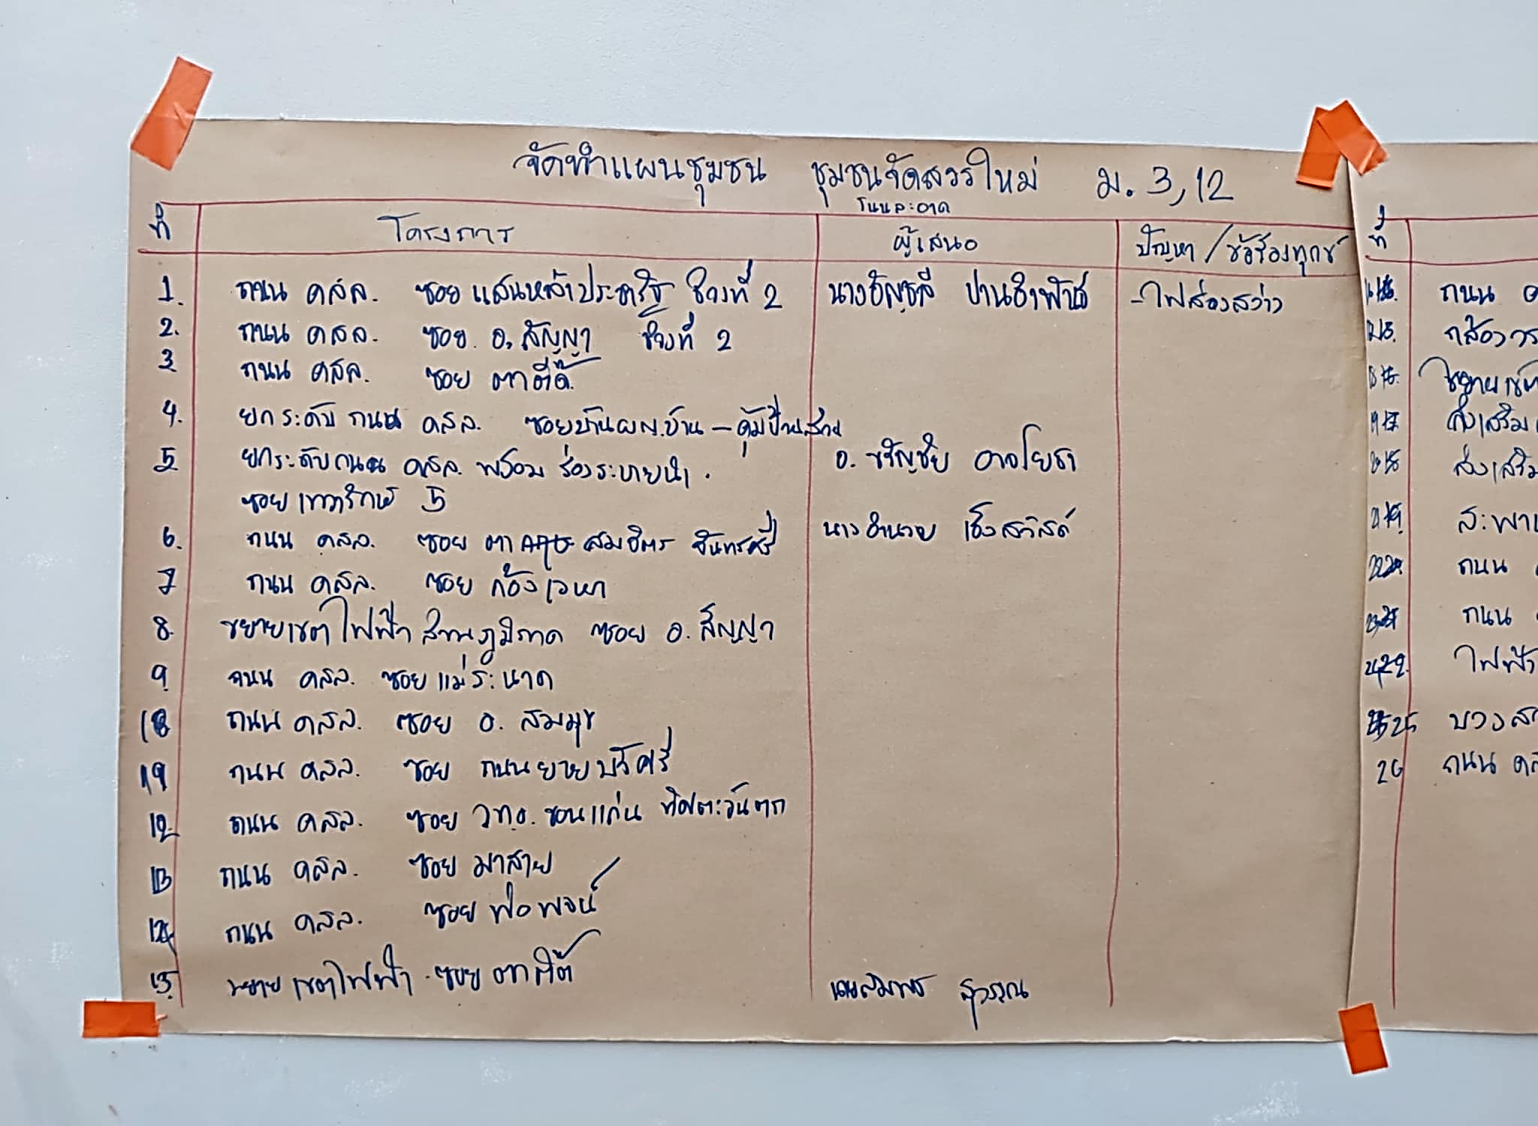 จัดทำแผนชุมชน ชุมชนจัดสวรใหม่ ม. 3, 12
โนนสะอาด
ที่ โครงการ ผู้เสนอ ปัญหา / ข้อร้องทุกข์
1. ถนน คสล. ซอย แสนหล้าประชารัฐ ช่วงที่ 2 นางอัญชลี ปานอำพันธ์ -ไฟส่องสว่าง
2. ถนน คสล. ซอย. อ. สัญญา ช่วงที่ 2
3 ถนน คสล. ซอย ตาตี๋
4. ยกระดับ ถนน คสล. ซอยบ้านผญ.บ้าน - คุ้มป้า
5 ยกระดับถนน คสล. พร้อม ร่องระบายน้ำ. อ. ขวัญชัย อาจโยธา
ซอย เทวารักษ์ 5
6. ถนน คสล. ซอย ตา สมจิตร จันทรศรี นางอำนวย
7 ถนน คสล. ซอย ก้องเวหา
8. ขยายเขต ไฟฟ้า ส่วนภูมิภาค ซอย อ. สัญญา
9. ถนน คสล. ซอย แม่ระนาด
10 ถนน คสล. ซอย อ. สมมุข
11 ถนน คสล. ซอย ถนน ยายบัวศรี
12 ถนน คสล. ซอย วท.อ. ขอนแก่น ทิศตะวันตก
13 ถนน คสล. ซอย มาสาย
14 ถนน คสล. ซอย พ่อ พจน์
15 ขยาย เขตไฟฟ้า. ซอย ตาตี๋ สุวรรณ
ที่
ถนน ค
กล้องวร
ขยายเขต
ส่งเสริม
ส่งเสริม
สะพา
ถนน
ถนน
ไฟฟ้า
25 บวงส
26 ถนน คส